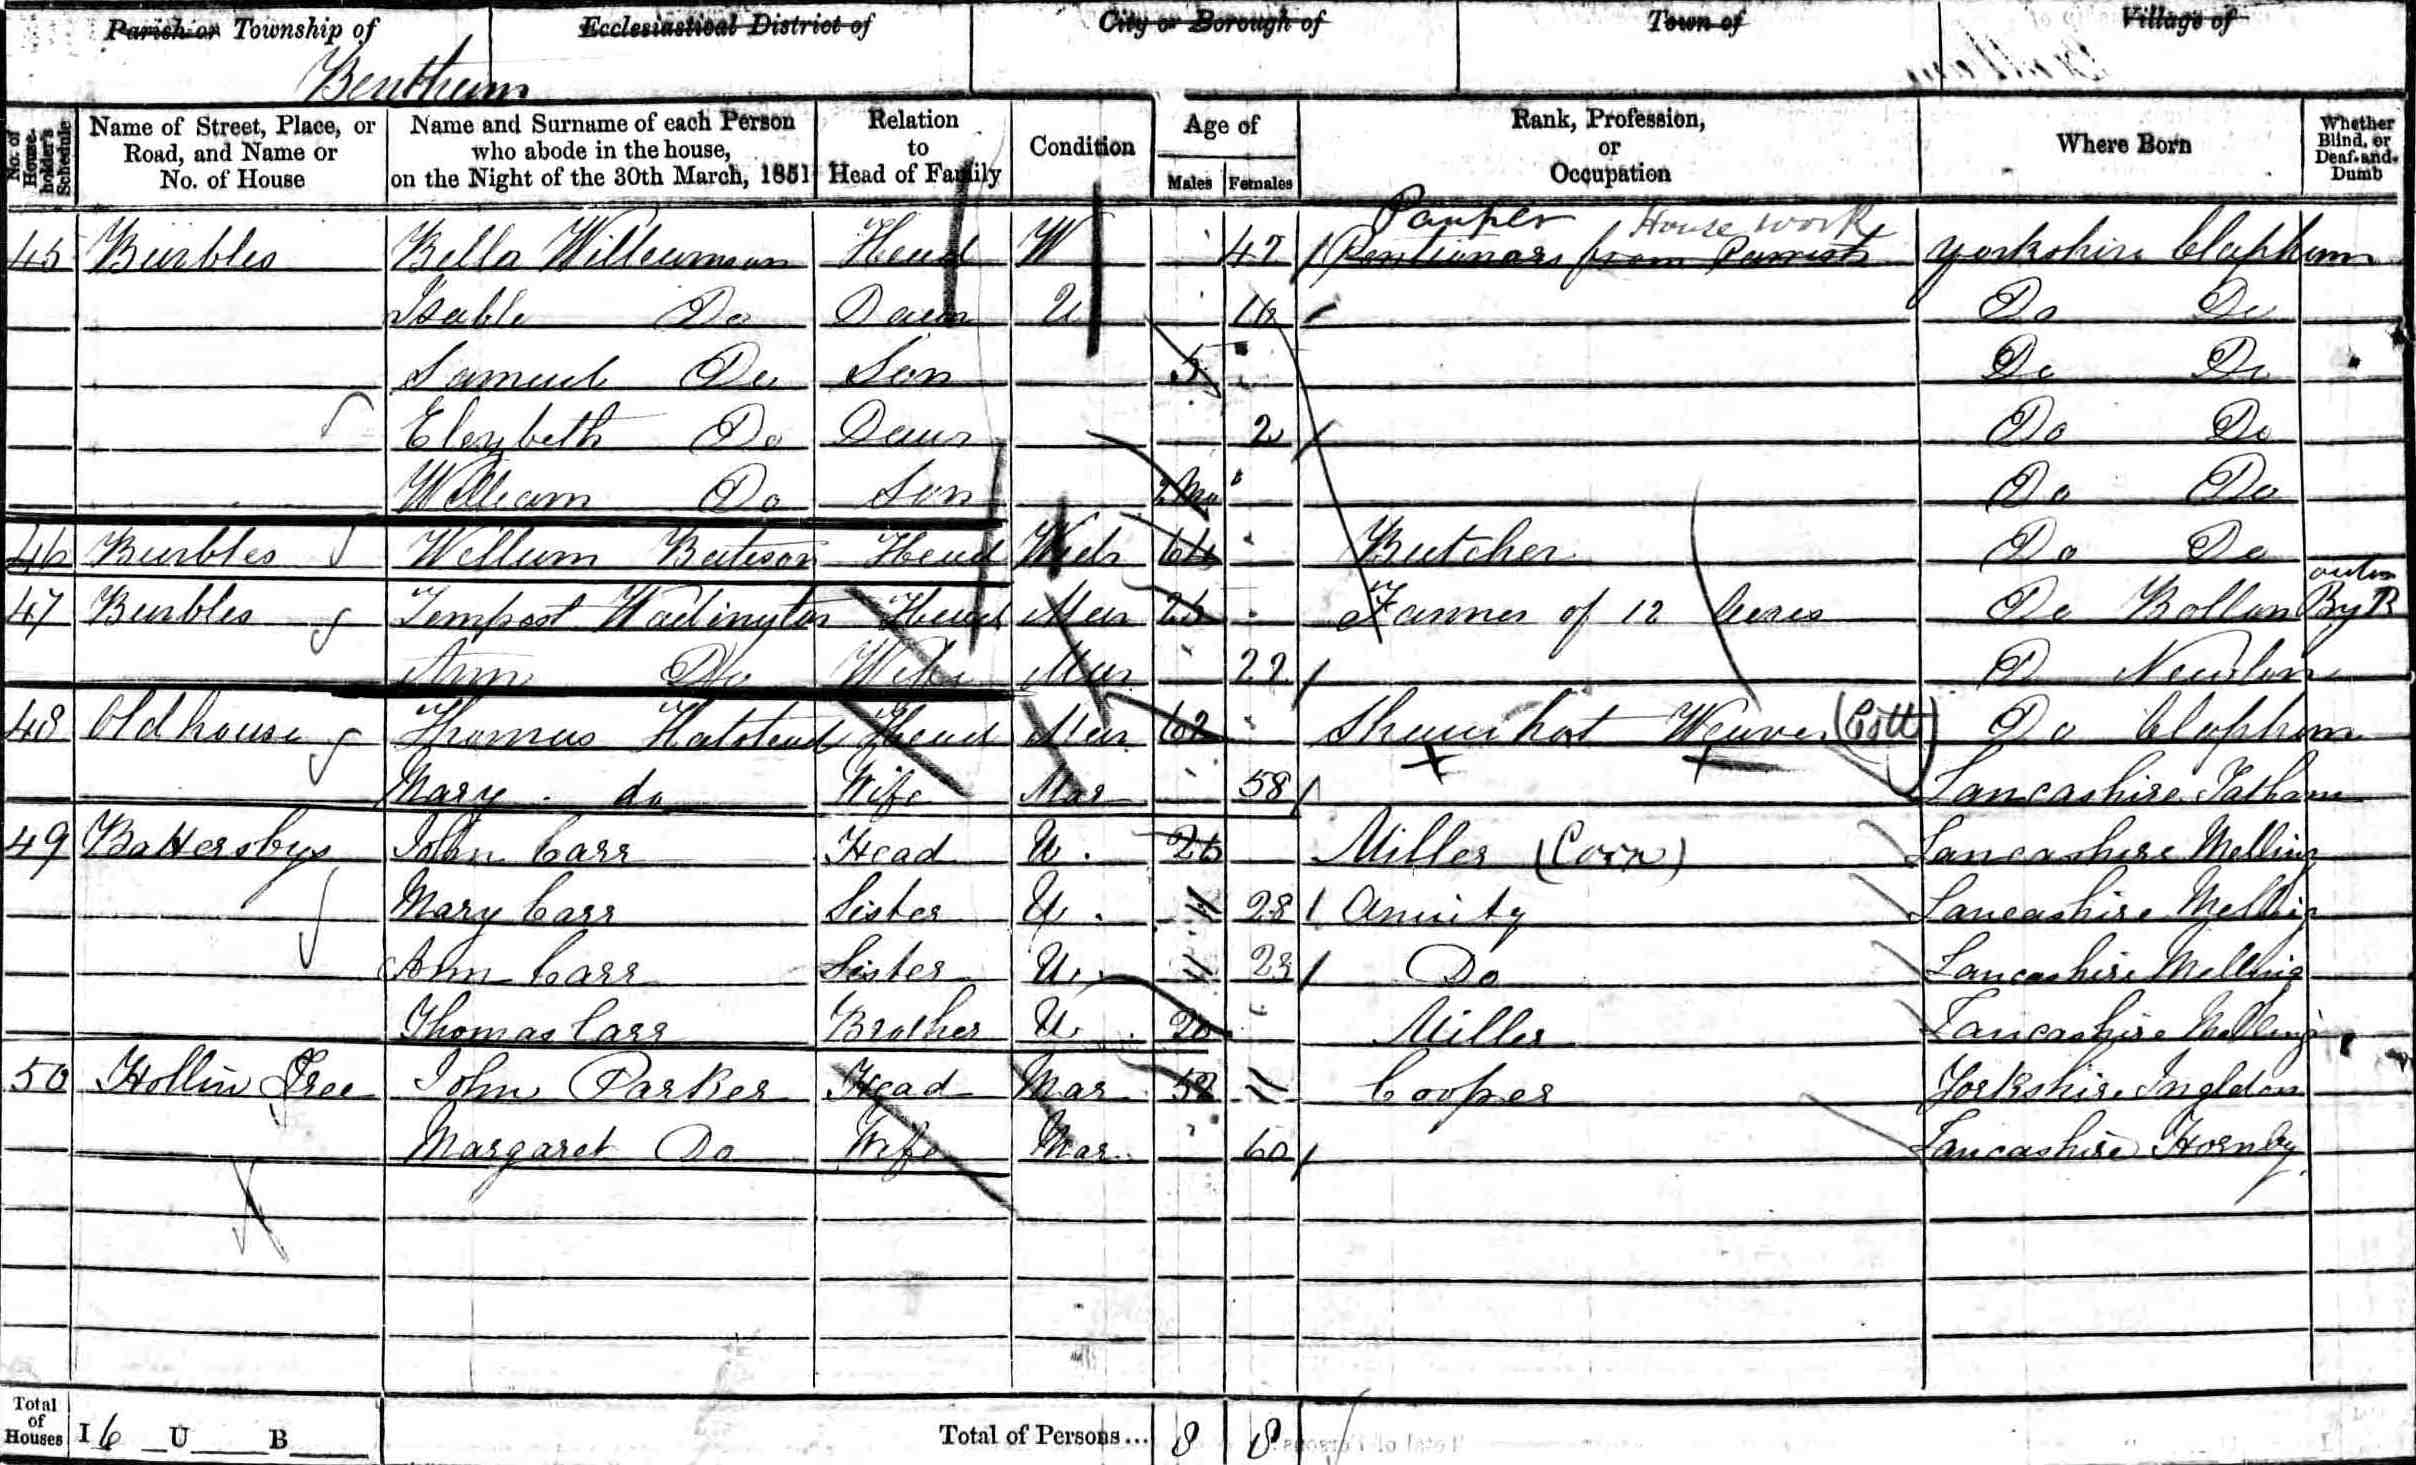 Parish or Township of Ecclesiastical District of City or Borough of Town of Village of
Bentham
No. of House-holder's Schedule
Name of Street, Place, or Road, and Name or No. of House
Name and Surname of each Person who abode in the house, on the Night of the 30th March, 1851
Relation to Head of Family
Condition
Age of
Males Females
Rank, Profession, or Occupation
Where Born
Whether Blind, or Deaf-and-Dumb
Pauper House work
45 Burbles Bella Head W 42 from Yorkshire Clapham
Isable Do Daur U 16 Do Do
Samuel Do Son 5 Do Do
Do Daur 2 Do Do
William Do Son 2 Mo Do Do
46 Burbles Bateson Head 64 Butcher Do Do
47 Burbles Tempest Wadington Head Mar Farmer of 12 Acres Do
Ann Do Wife Mar 22 D Newton
48 Old house Thomas Head Mar 62 Weaver (Cott) Do Clapham
Mary do Wife Mar 58 Lancashire Tatham
49 Battersbys John Carr Head U. Miller (Corn) Lancashire Melling
Mary Carr Sister U. 〃 28 Anuity Lancashire Melling
Ann Carr Sister U. 〃 23 Do Lancashire Melling
Thomas Carr Brother U. 20 Miller Lancashire Melling
50 Hollin Tree John Parker Head Mar 52 〃 Cooper Yorkshire Ingleton
Margaret Do Wife Mar 60 Lancashire Hornby
Total of Houses I 6 U B Total of Persons... 8 8